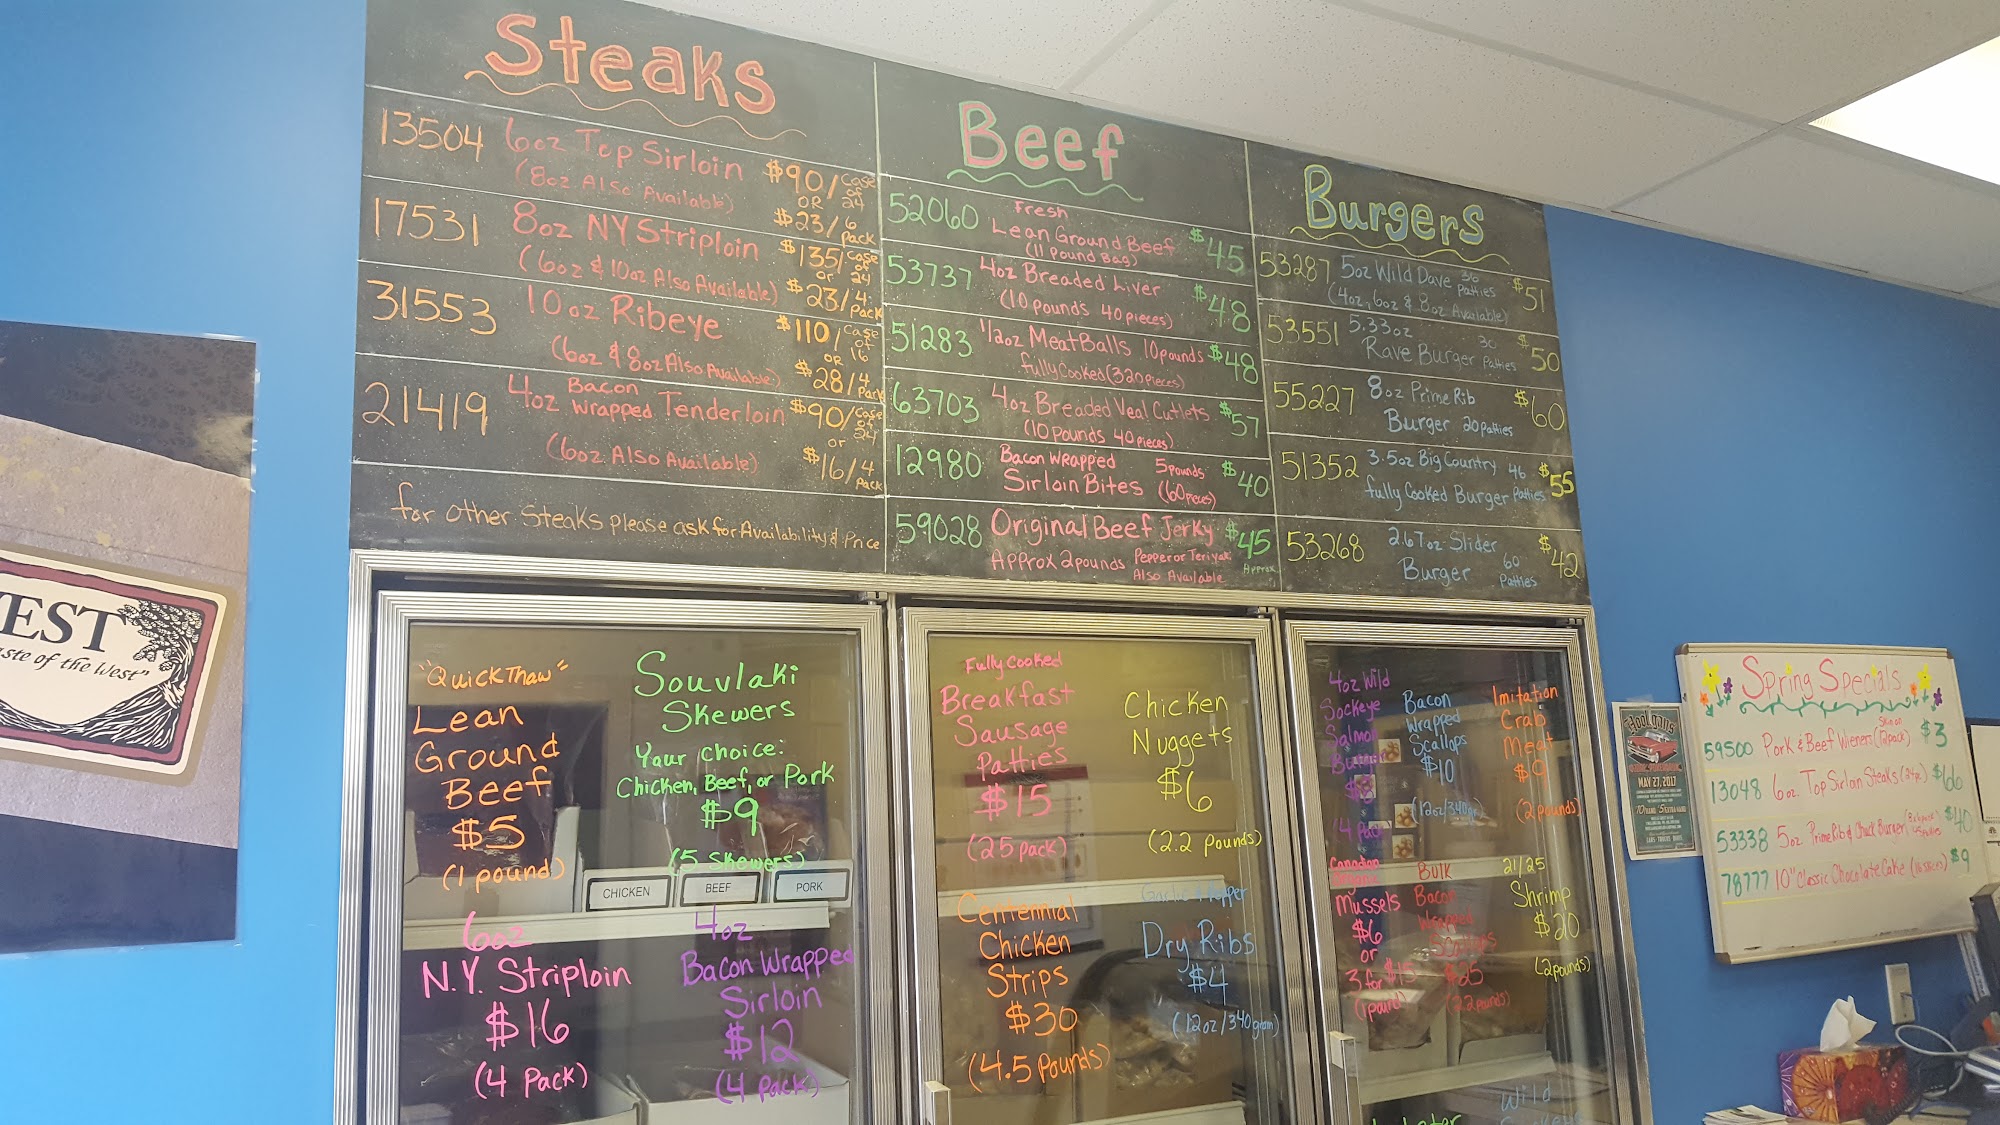 Steaks
13504 6oz Top Sirloin $90/Case of 24
(8oz Also Available) OR $23/6 Pack
17531 8oz NY Striploin $135/Case of 24
(6oz & 10oz Also Available) or $23/4 Pack
31553 10oz Ribeye $110/Case of 16
(6oz & 8oz Also Available) OR $28/4 Pack
21419 4oz Bacon Wrapped Tenderloin $90/Case of 24
(6oz Also Available) or $16/4 Pack
for other Steaks please ask for Availability & Price
Beef
52060 Fresh Lean Ground Beef $45
(11 pound Bag)
53737 4oz Breaded Liver $48
(10 pounds 40 pieces)
51283 1/2oz MeatBalls 10 pounds $48
fully Cooked (320 pieces)
63703 4oz Breaded Veal Cutlets $57
(10 Pounds 40 Pieces)
12980 Bacon Wrapped 5 pounds $40
Sirloin Bites (60 pieces)
59028 Original Beef Jerky $45
Approx 2 pounds Pepper or Teriyaki Approx
Also Available
Burgers
53287 5oz Wild Dave 36 Patties $51
(4oz, 6oz & 8oz Available)
53551 5.33oz 30 $50
Rave Burger Patties
55227 8oz Prime Rib $60
Burger 20 Patties
51352 3.5oz Big Country 46 $55
fully Cooked Burger Patties
53268 2.67oz Slider $42
Burger 60 Patties
EST
ste of the West"
"Quick Thaw"
Lean
Ground
Beef
$5
(1 pound)
Souvlaki
Skewers
Your choice:
Chicken, Beef, or Pork
$9
(5 Skewers)
CHICKEN
BEEF
PORK
6oz
N.Y. Striploin
$16
(4 Pack)
4oz
Bacon Wrapped
Sirloin
$12
(4 Pack)
Fully Cooked
Breakfast
Sausage
Patties
$15
(25 pack)
Chicken
Nuggets
$6
(2.2 Pounds)
Centennial
Chicken
Strips
$30
(4.5 Pounds)
Garlic & Pepper
Dry Ribs
$4
(12oz/340gram)
4oz Wild
Sockeye
Salmon
Burger
$8
4 Pack
Bacon
Wrapped
Scallops
$10
(12oz/340gr)
Imitation
Crab
Meat
$9
(2 pounds)
Canadian
Organic
Mussels
$6
or
3 for $15
(1 pound)
Bulk
Bacon
Wrapped
Scallops
$25
(2.2 pounds)
21/25
Shrimp
$20
(2 pounds)
Wild
Spring Specials
59500 Pork & Beef Wieners Skin on (12 pack) $3
13048 6oz. Top Sirloin Steaks (24pc) $66
53338 5oz Prime Rib & Chuck Burger $40
78777 10" Classic Chocolate Cake (16 slices) $9
MAY 27, 2017